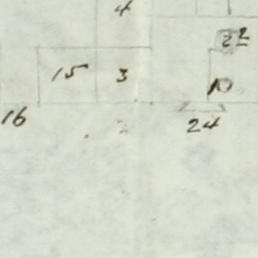 4
22
15 3 10
16 24